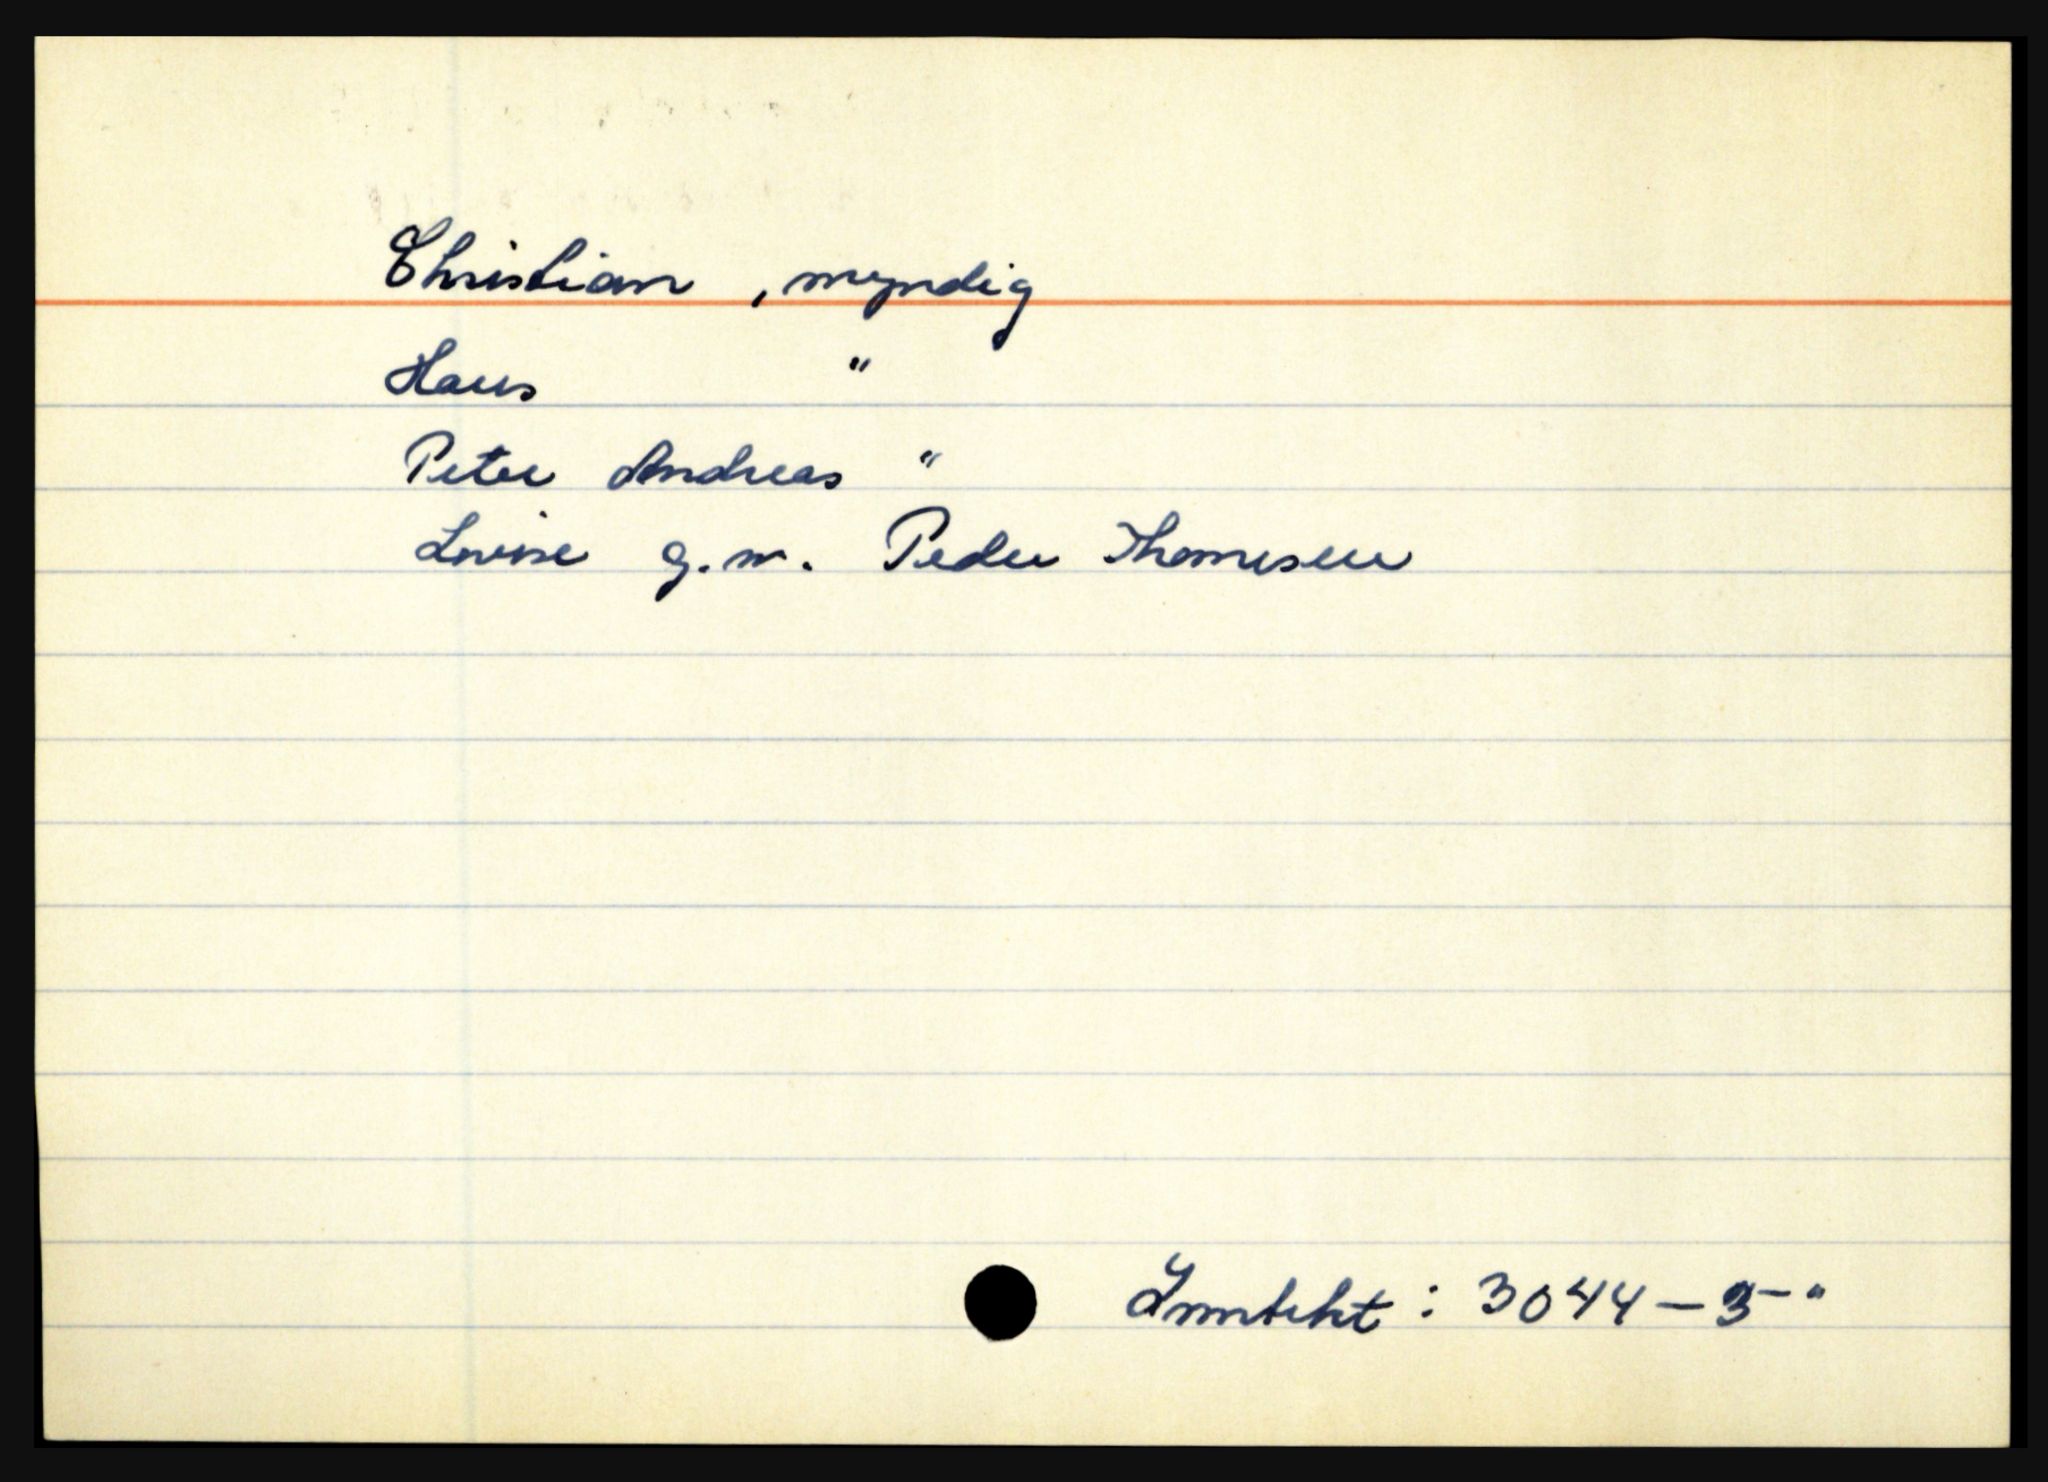 Christian , myndig
Hans "
Peter Andreas "
Lovise g.m. Peder Thomesen
Inntekt : 3044 — 3 — "